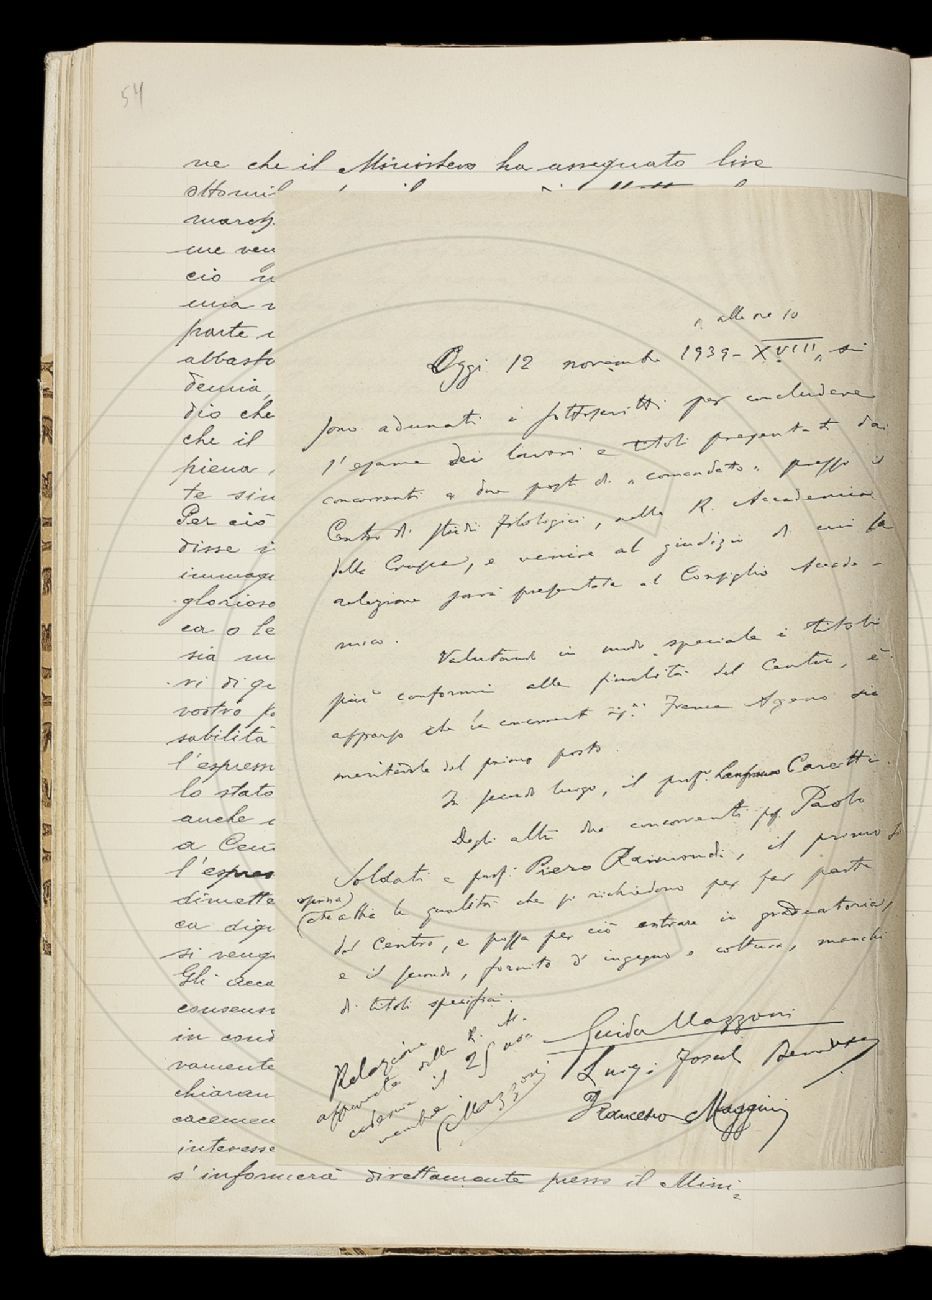 54
ne che il Ministero ha assegnato lire
ottomil
march
me ven
cio
una
parte
abbast
demia,
dio che
che il
piena,
te sin
Per ciò
disse
immag
glorioso
ca o le
sia
vi di
vostro
sabilità
l'espress
lo stato
anche
a Cen
l'espres
dimette
ca dign
si veng
Gli acca
consens
in cond
vamente
chiaran
cacemen
interesse
s'informerà direttamente presso il Mini-
alle ore 10
Oggi 12 novembre 1939-XVIII, si
sono adunati i sottoscritti per concludere
l'esame dei lavori e titoli presentati dai
concorrenti a due posti di "comandato" presso il
Centro di studi filologici, nella R. Accademia
della Crusca, e venire al giudizio di cui la
relazione sarà presentata al Consiglio Accade-
mico.
Valutando in modo speciale i titoli
più conformi alle finalità del Centro, è
apparso che la concorrente sig.na Franca Ageno sia
meritevole del primo posto.
In secondo luogo, il prof. Lanfranco Caretti.
Degli altri due concorrenti, prof. Paolo
Soldati e prof. Piero Raimondi, il primo si
che abbia le qualità che si richiedono per far parte
del Centro, e possa per ciò entrare in graduatoria,
e il secondo, fornito d'ingegno e coltura, manchi
di titoli specifici.
Guido Mazzoni
Luigi Foscolo Benedetto
Francesco Maggini
Relazione
approvata dalla R. Ac-
cademia il 25 nov-
vembre.
GMazzoni